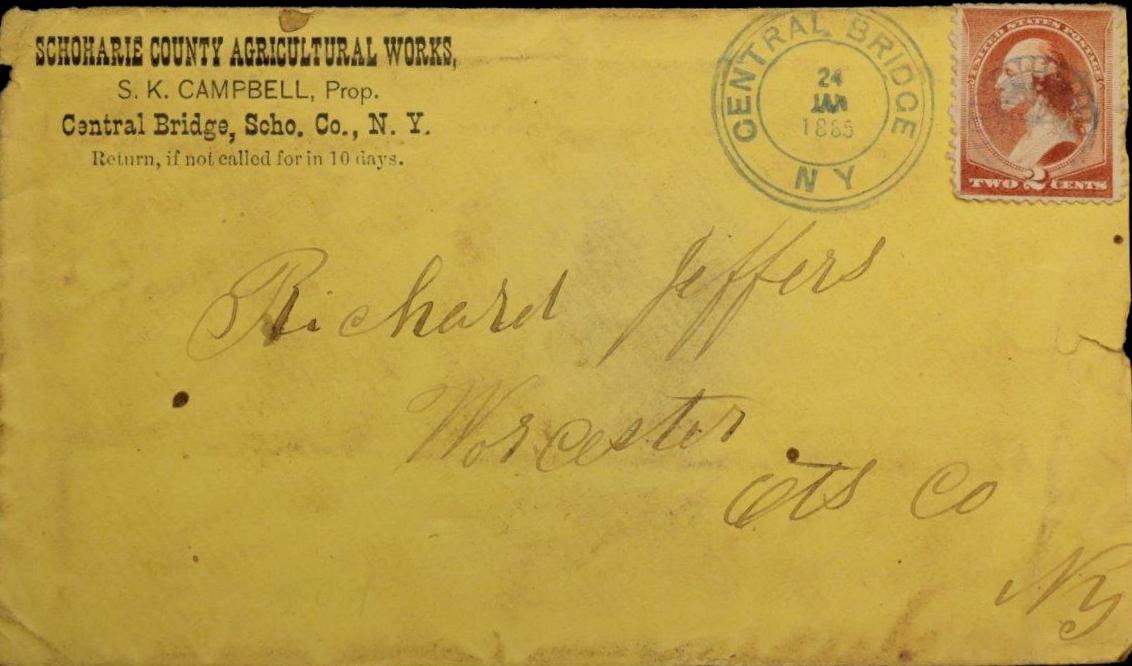 SCHOHARIE COUNTY AGRICULTURAL WORKS,
S. K. CAMPBELL, Prop.
Central Bridge, Scho. Co., N. Y.
Return, if not called for in 10 days.
CENTRAL BRIDGE
24
JAN
1885
N Y
UNITED STATES POSTAGE
TWO 2 CENTS
Richard Jeffers
Worcester
Ots Co
Ny